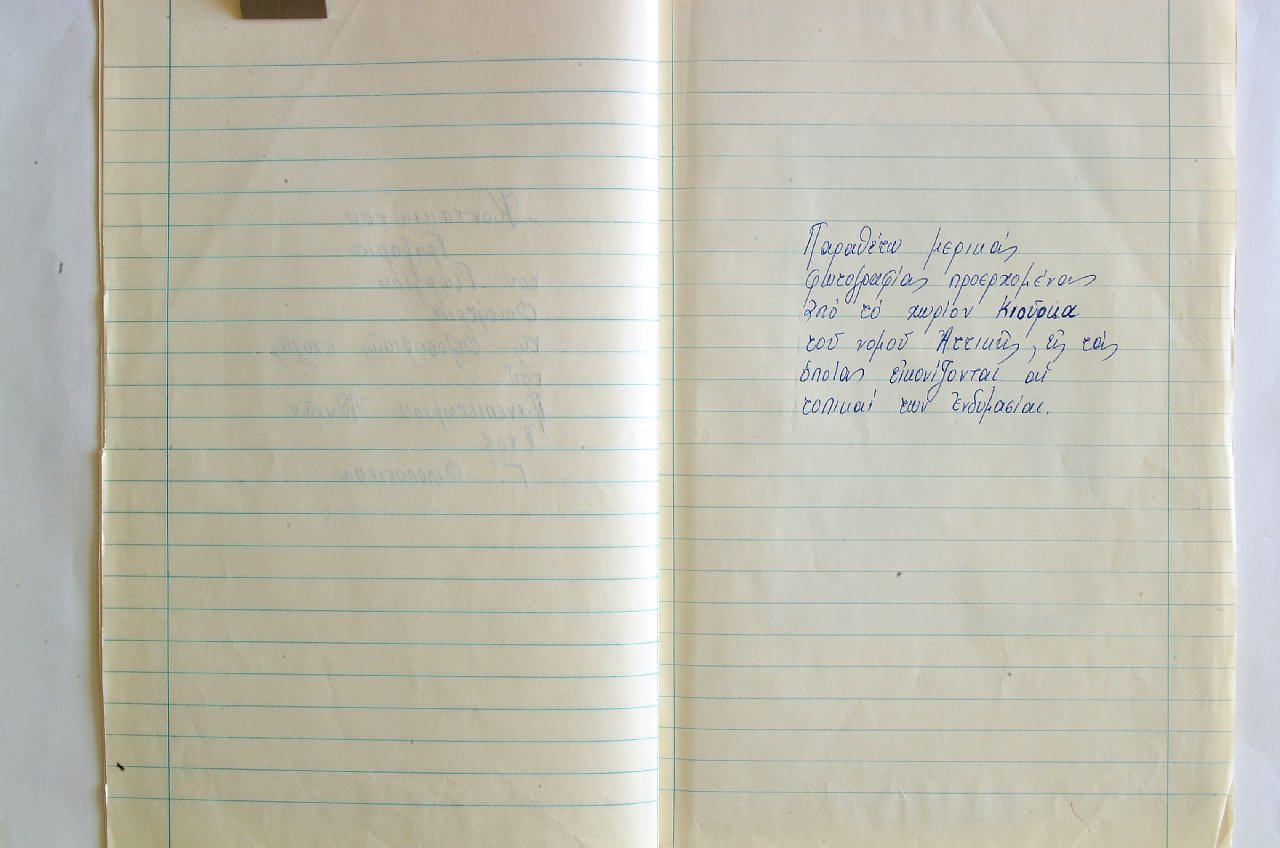 Παραθέτω μερικάς
φωτογραφίας προερχομένας
ἀπό τό χωρίον Κιούρκα
τοῦ νομοῦ Ἀττικῆς, εἰς τάς
ὁποίας εἰκονίζονται αἱ
τοπικαί των ἐνδυμασίαι.